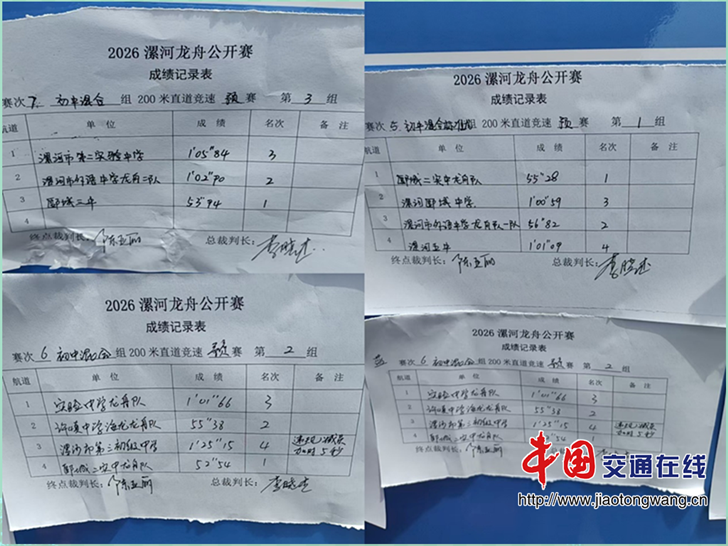 2026 漯河龙舟公开赛
成绩记录表
赛次 7. 初中混合 组 200 米直道竞速 预 赛 第 3 组
航道 单 位 成 绩 名次 备 注
1 漯河市第二实验中学 1'05"84 3
2 漯河市 中学龙舟二队 1'02"90 2
3 郾城三中 53"94 1
4
终点裁判长： 总裁判长：
2026 漯河龙舟公开赛
成绩记录表
赛次 5. 初中混合 组 200 米直道竞速 预 赛 第 1 组
航道 单 位 成 绩 名次 备 注
1 郾城二实中龙舟队 55"28 1
2 漯河郾城中学 1'00"59 3
3 漯河市 中学龙舟队一队 56"82 2
4 漯河五中 1'01"09 4
终点裁判长： 总裁判长：
2026 漯河龙舟公开赛
成绩记录表
赛次 6 初中混合 组 200 米直道竞速 预 赛 第 2 组
航道 单 位 成 绩 名次 备 注
1 实验中学龙舟队 1'01"66 3
2 许慎中学海龙龙舟队 55"38 2
3 漯河市第三初级中学 1'25"15 4 加时5秒
4 郾城二实中龙舟队 52"54 1
终点裁判长： 总裁判长：
2026 漯河龙舟公开赛
成绩记录表
赛次 6. 初中混合 组 200 米直道竞速 预 赛 第 2 组
航道 单 位 成 绩 名次 备 注
1 实验中学龙舟队 1'01"66 3
2 许慎中学海龙龙舟队 55"38 2
3 漯河市第三初级中学 1'25"15 4 加时5秒
4 郾城二实中龙舟队
终点裁判长：
中国交通在线
http://www.jiaotongwang.cn